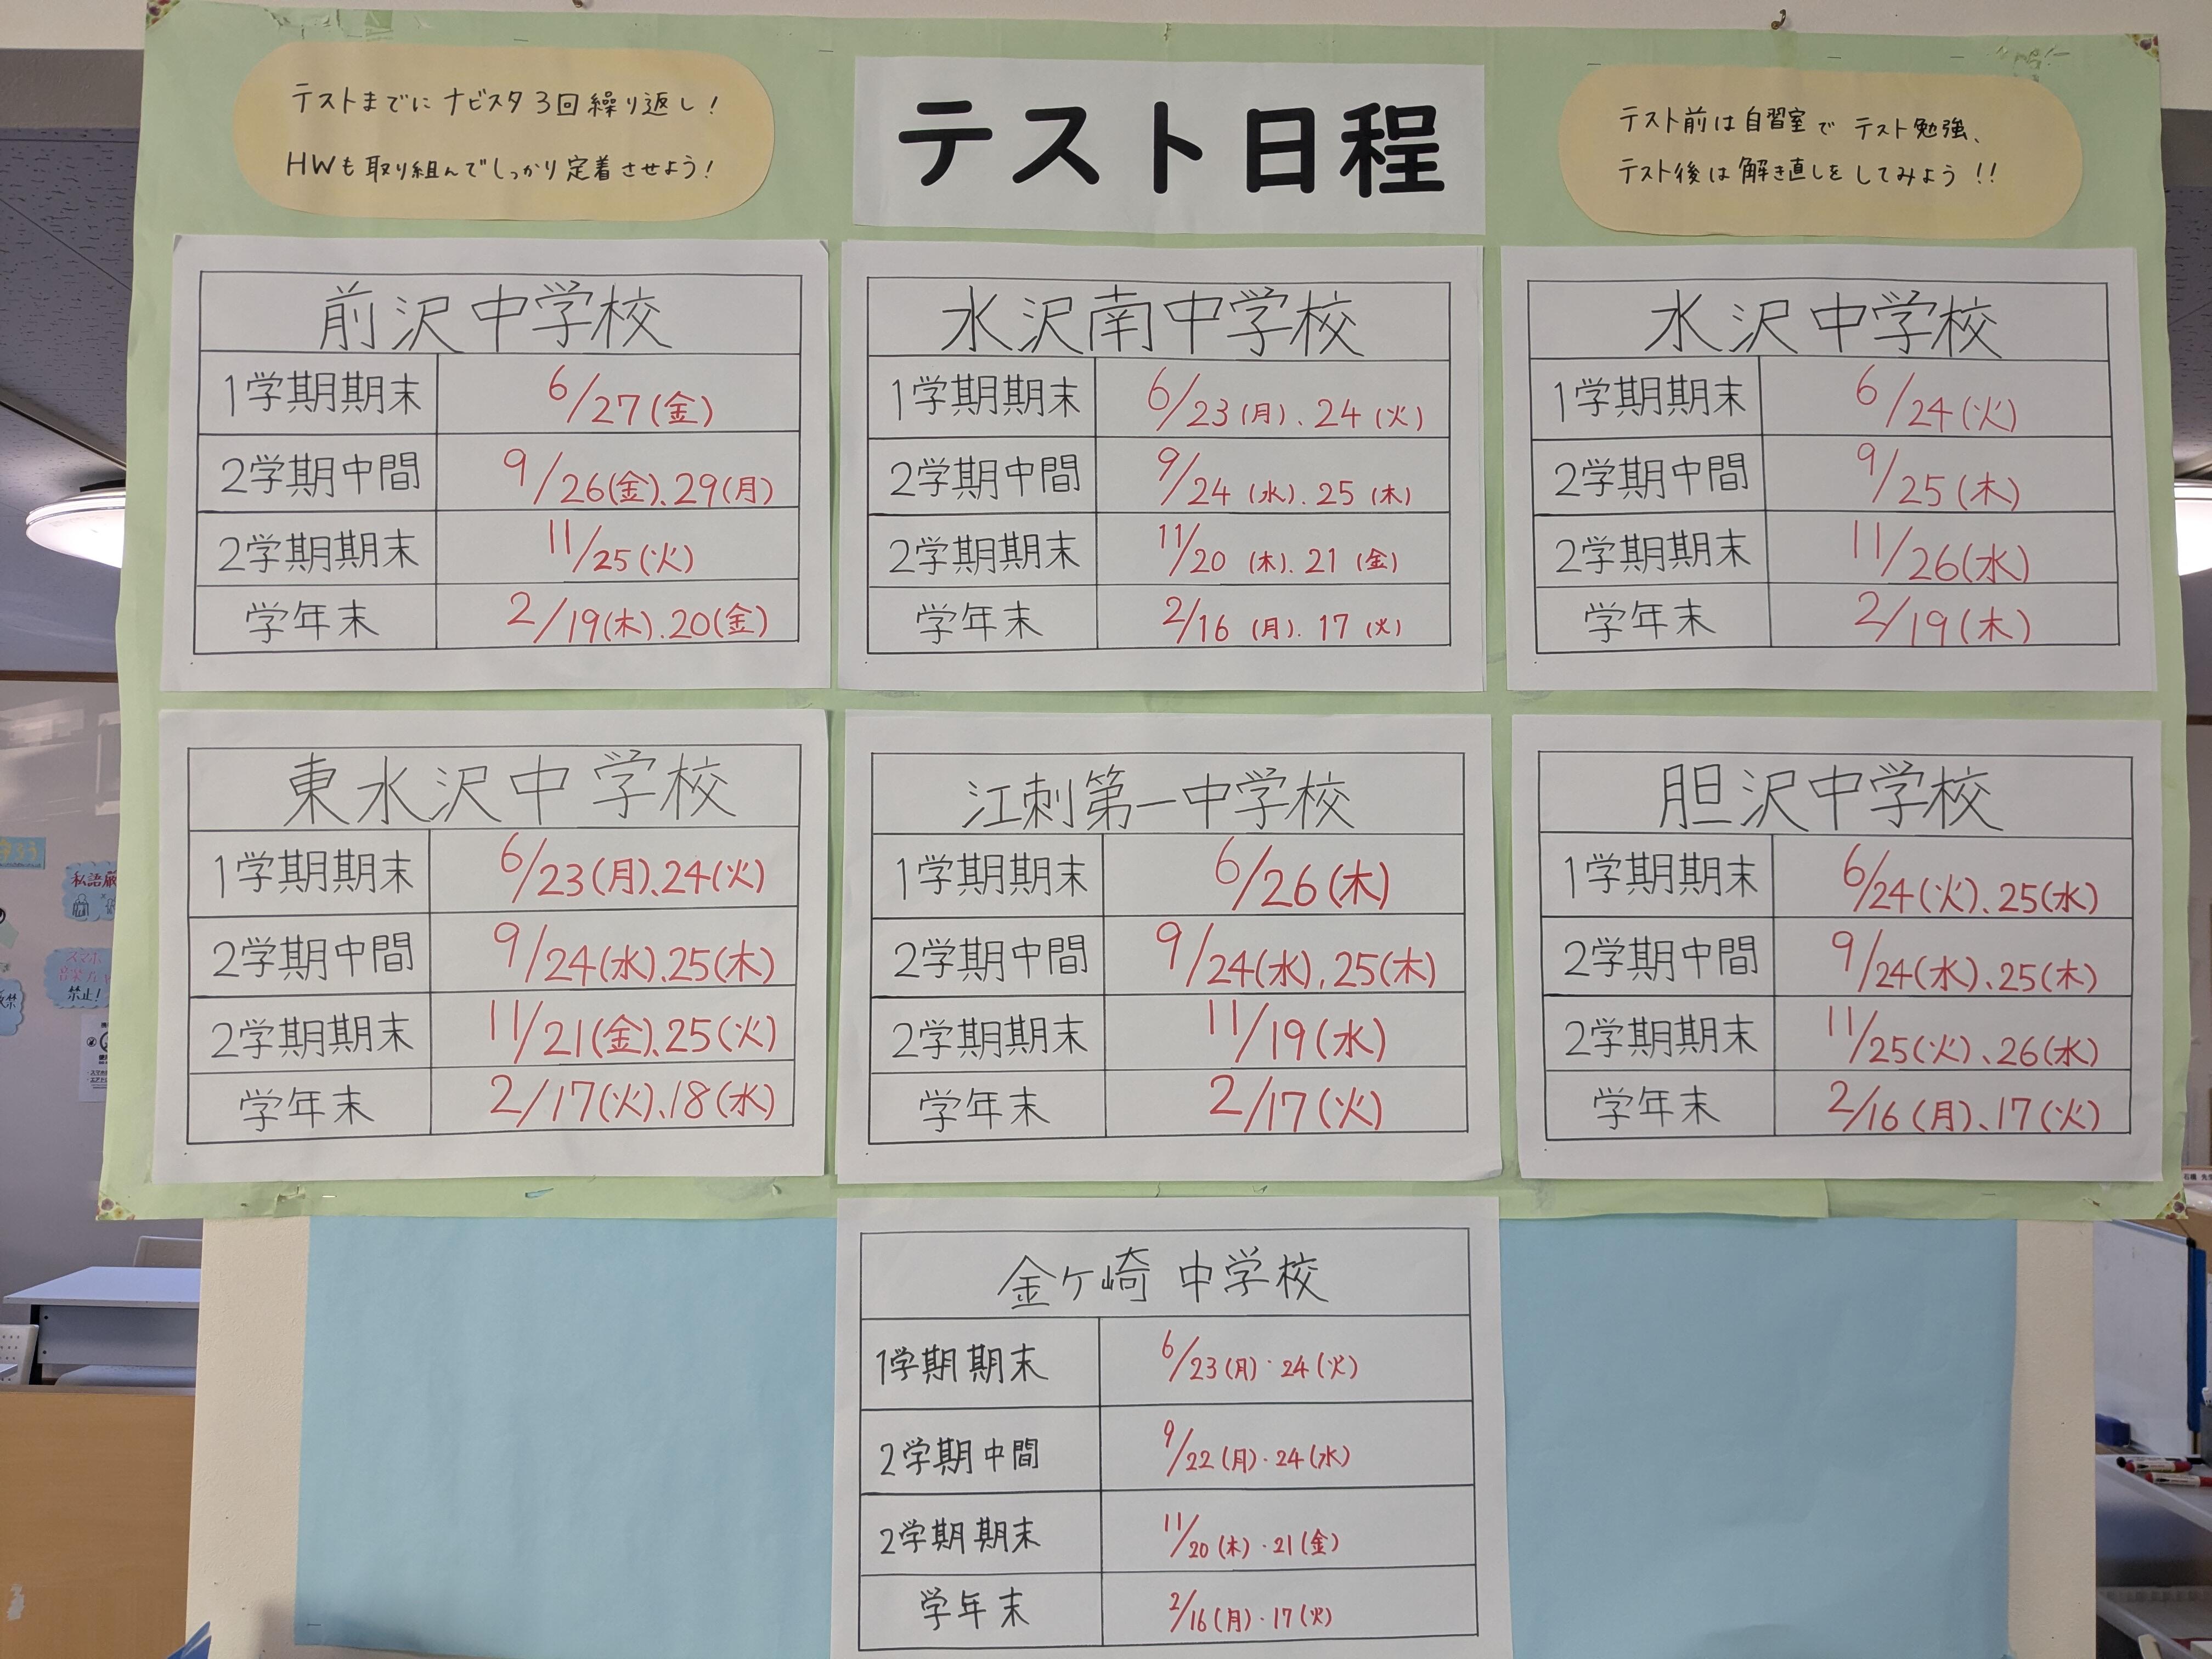 テストまでにナビスタ3回繰り返し!
HWも取り組んでしっかり定着させよう!
テスト日程
テスト前は自習室でテスト勉強、
テスト後は解き直しをしてみよう!!
前沢中学校
1学期期末 6/27(金)
2学期中間 9/26(金)、29(月)
2学期期末 11/25(火)
学年末 2/19(木)、20(金)
水沢南中学校
1学期期末 6/23(月)、24(火)
2学期中間 9/24(水)、25(木)
2学期期末 11/20(木)、21(金)
学年末 2/16(月)、17(火)
水沢中学校
1学期期末 6/24(火)
2学期中間 9/25(木)
2学期期末 11/26(水)
学年末 2/19(木)
東水沢中学校
1学期期末 6/23(月)、24(火)
2学期中間 9/24(水)、25(木)
2学期期末 11/21(金)、25(火)
学年末 2/17(火)、18(水)
江刺第一中学校
1学期期末 6/26(木)
2学期中間 9/24(水)、25(木)
2学期期末 11/19(水)
学年末 2/17(火)
胆沢中学校
1学期期末 6/24(火)、25(水)
2学期中間 9/24(水)、25(木)
2学期期末 11/25(火)、26(水)
学年末 2/16(月)、17(火)
金ケ崎中学校
1学期期末 6/23(月)・24(火)
2学期中間 9/22(月)・24(水)
2学期期末 11/20(木)・21(金)
学年末 2/16(月)・17(火)
私語厳
スマホ
禁止!